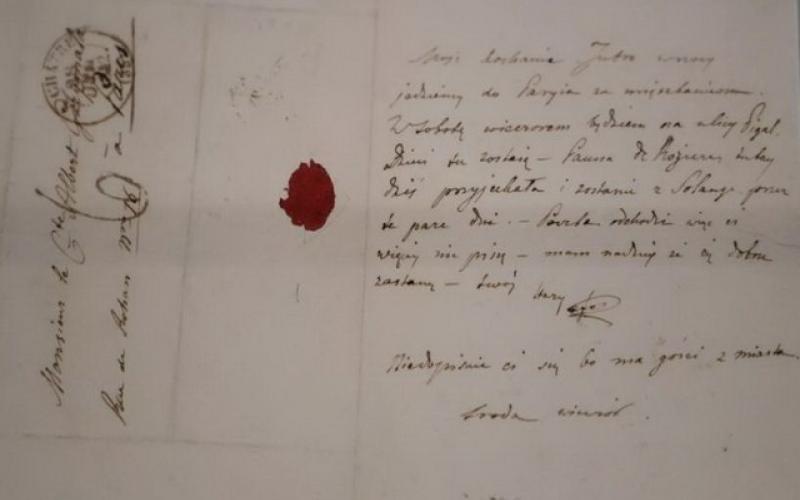 Moje kochanie Jutro w nocy
jedziemy do Paryża za mięszkaniem.
W Sobotę wieczorem będziem na ulicy Pigal.
Dzieci tu zostaję — Panna de Rozieres
dziś przyjechała i zostanie z Solange przez
te parę dni. — Poczta odchodzi więc ci
więcej nie piszę — mam nadzieję że cię dobrze
zastanę — twój stary
Niedopisuie ci się bo ma gości z miasta.
Środa wieczór.
Monsieur le Cte Albert
Rue de Rohan No
à Paris